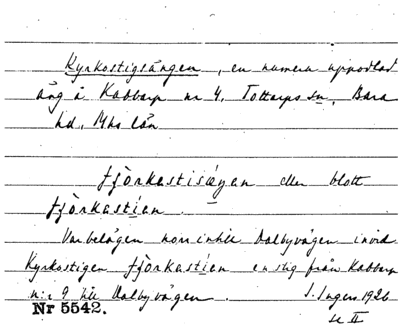 Kyrkostigsängen, en numera uppodlad
äng å Kabbarp nr 4, Tottarps sn, Bara
hd, Mhs län
fjòrkastisæŋen eller blott
fjòrkastien.
Var belägen norr intill Dalbyvägen invid
Kyrkostigen fjòrkastien en stig från Kabbarp
n:r 9 till Dalbyvägen. S. Ingers 1926
Nr 5542. se II